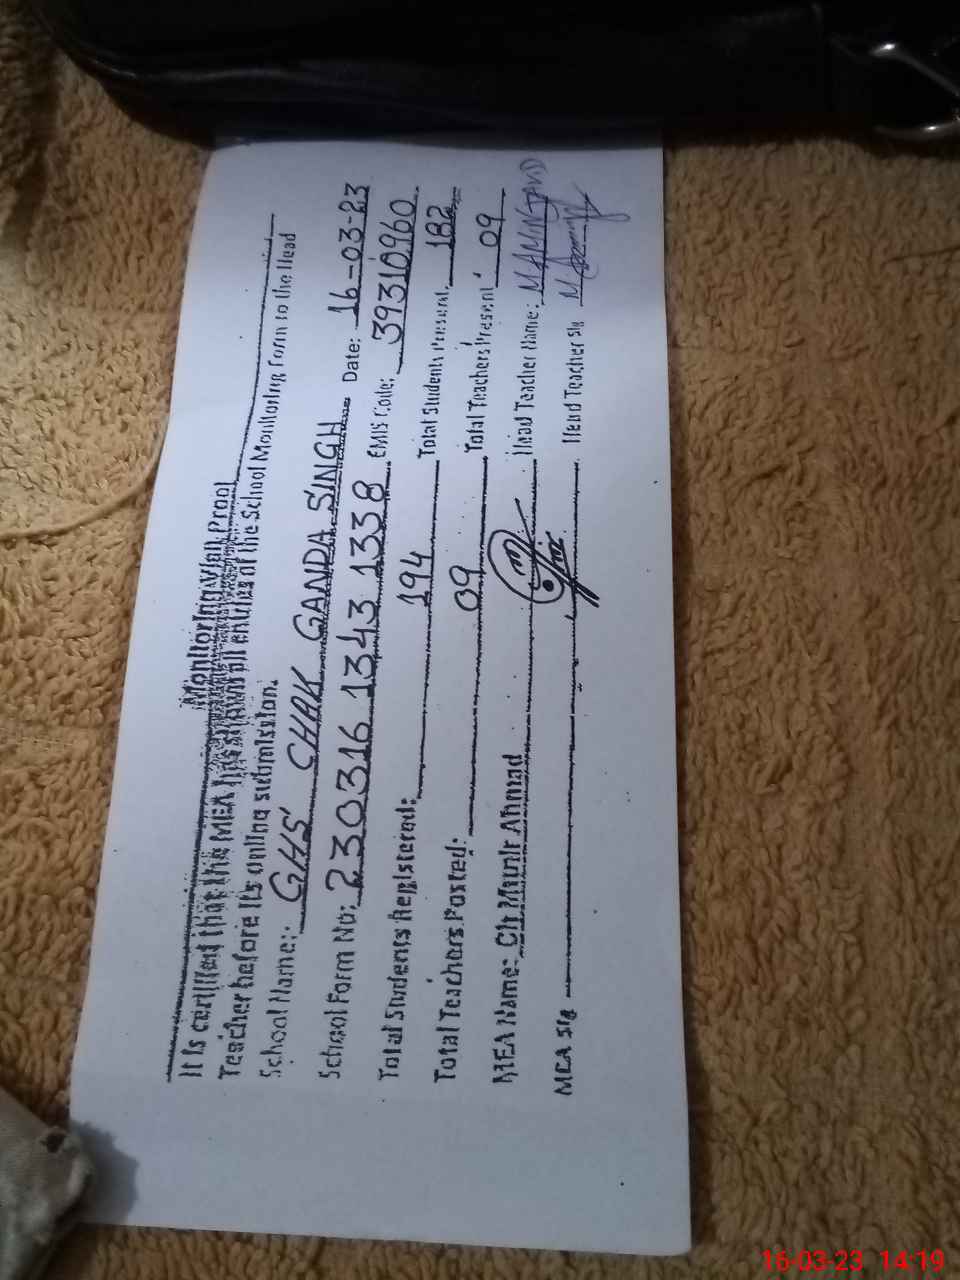 Monitoring Visit Proof
It is certified that the MEA has shown all entries of the School Monitoring Form to the Head
Teacher before its online submission.
School Name: GHS CHAK GANDA SINGH Date: 16-03-23
School Form No: 230316 1343 1338 EMIS Code: 39310960
Total Students Registered: 194 Total Students Present: 182
Total Teachers Posted: 09 Total Teachers Present: 09
MEA Name: Ch Munir Ahmad Head Teacher Name: M AMIN JAVID
MEA Sig Head Teacher Sig
16-03-23 14:19